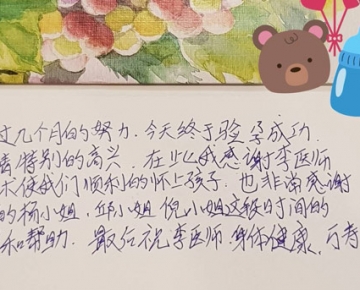 过几个月的努力.今天终于验孕成功.
情特别的高兴.在此我感谢李医师
术使我们顺利的怀上孩子.也非常感谢
的杨小姐.邱小姐倪小姐这段时间的
和帮助.最后祝李医师.身体健康.万寿